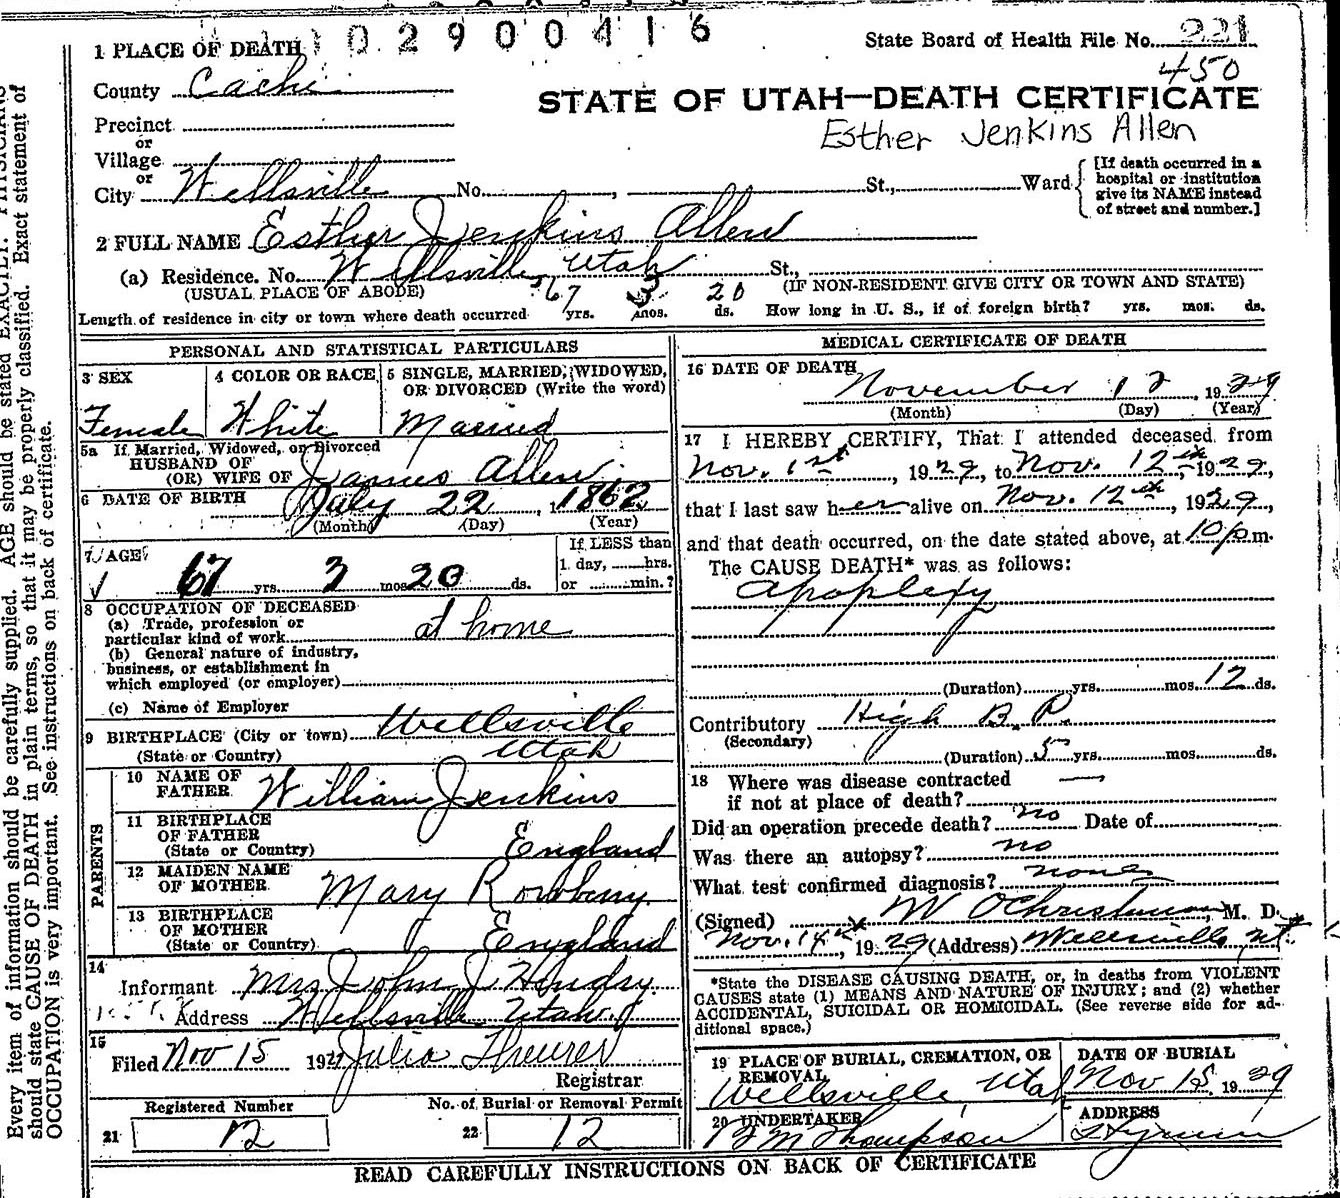 02900416
State Board of Health File No. 221
450
1 PLACE OF DEATH
County Cache
STATE OF UTAH—DEATH CERTIFICATE
Esther Jenkins Allen
Precinct
or
Village
or
City Wellsville No. , St., Ward
[If death occurred in a
hospital or institution
give its NAME instead
of street and number.]
2 FULL NAME Esther Jenkins Allen
(a) Residence. No. Wellsville Utah St.,
(USUAL PLACE OF ABODE) (IF NON-RESIDENT GIVE CITY OR TOWN AND STATE)
Length of residence in city or town where death occurred 67 yrs. 3 mos. 20 ds. How long in U. S., if of foreign birth? yrs. mos. ds.
PERSONAL AND STATISTICAL PARTICULARS
3 SEX
Female
4 COLOR OR RACE
White
5 SINGLE, MARRIED, WIDOWED,
OR DIVORCED (Write the word)
Married
5a If Married, Widowed, or Divorced
HUSBAND OF
(OR) WIFE OF James Allen
6 DATE OF BIRTH July 22, 1862
(Month) (Day) (Year)
7 AGE
67 yrs. 3 mos. 20 ds.
If LESS than
1 day, hrs.
or min.?
8 OCCUPATION OF DECEASED
(a) Trade, profession or
particular kind of work at home
(b) General nature of industry,
business, or establishment in
which employed (or employer)
(c) Name of Employer
9 BIRTHPLACE (City or town) Wellsville
(State or Country) Utah
PARENTS
10 NAME OF
FATHER William Jenkins
11 BIRTHPLACE
OF FATHER
(State or Country) England
12 MAIDEN NAME
OF MOTHER Mary Rowbury
13 BIRTHPLACE
OF MOTHER
(State or Country) England
14
Informant Mrs John J Hendry
Address Wellsville Utah
15
Filed Nov 15 1929 Julia Theurer
Registrar
Registered Number
21 12
No. of Burial or Removal Permit
22 12
MEDICAL CERTIFICATE OF DEATH
16 DATE OF DEATH
November 12, 1929
(Month) (Day) (Year)
17 I HEREBY CERTIFY, That I attended deceased from
Nov. 1st, 1929, to Nov. 12th, 1929,
that I last saw her alive on Nov. 12th, 1929,
and that death occurred, on the date stated above, at 10 p m.
The CAUSE DEATH* was as follows:
Apoplexy
(Duration) yrs. mos. 12 ds.
Contributory High B. P.
(Secondary)
(Duration) 5 yrs. mos. ds.
18 Where was disease contracted
if not at place of death? —
Did an operation precede death? no Date of
Was there an autopsy? no
What test confirmed diagnosis? none
(Signed) , M. D.
Nov. 14th, 1929 (Address) Wellsville, Ut.
*State the DISEASE CAUSING DEATH, or, in deaths from VIOLENT
CAUSES state (1) MEANS AND NATURE OF INJURY; and (2) whether
ACCIDENTAL, SUICIDAL OR HOMICIDAL. (See reverse side for ad-
ditional space.)
19 PLACE OF BURIAL, CREMATION, OR
REMOVAL
Wellsville, Utah
DATE OF BURIAL
Nov 15, 1929
20 UNDERTAKER
Thompson
ADDRESS
READ CAREFULLY INSTRUCTIONS ON BACK OF CERTIFICATE
Every item of information should be carefully supplied. AGE should be stated EXACTLY. PHYSICIANS
should state CAUSE OF DEATH in plain terms, so that it may be properly classified. Exact statement of
OCCUPATION is very important. See instructions on back of certificate.